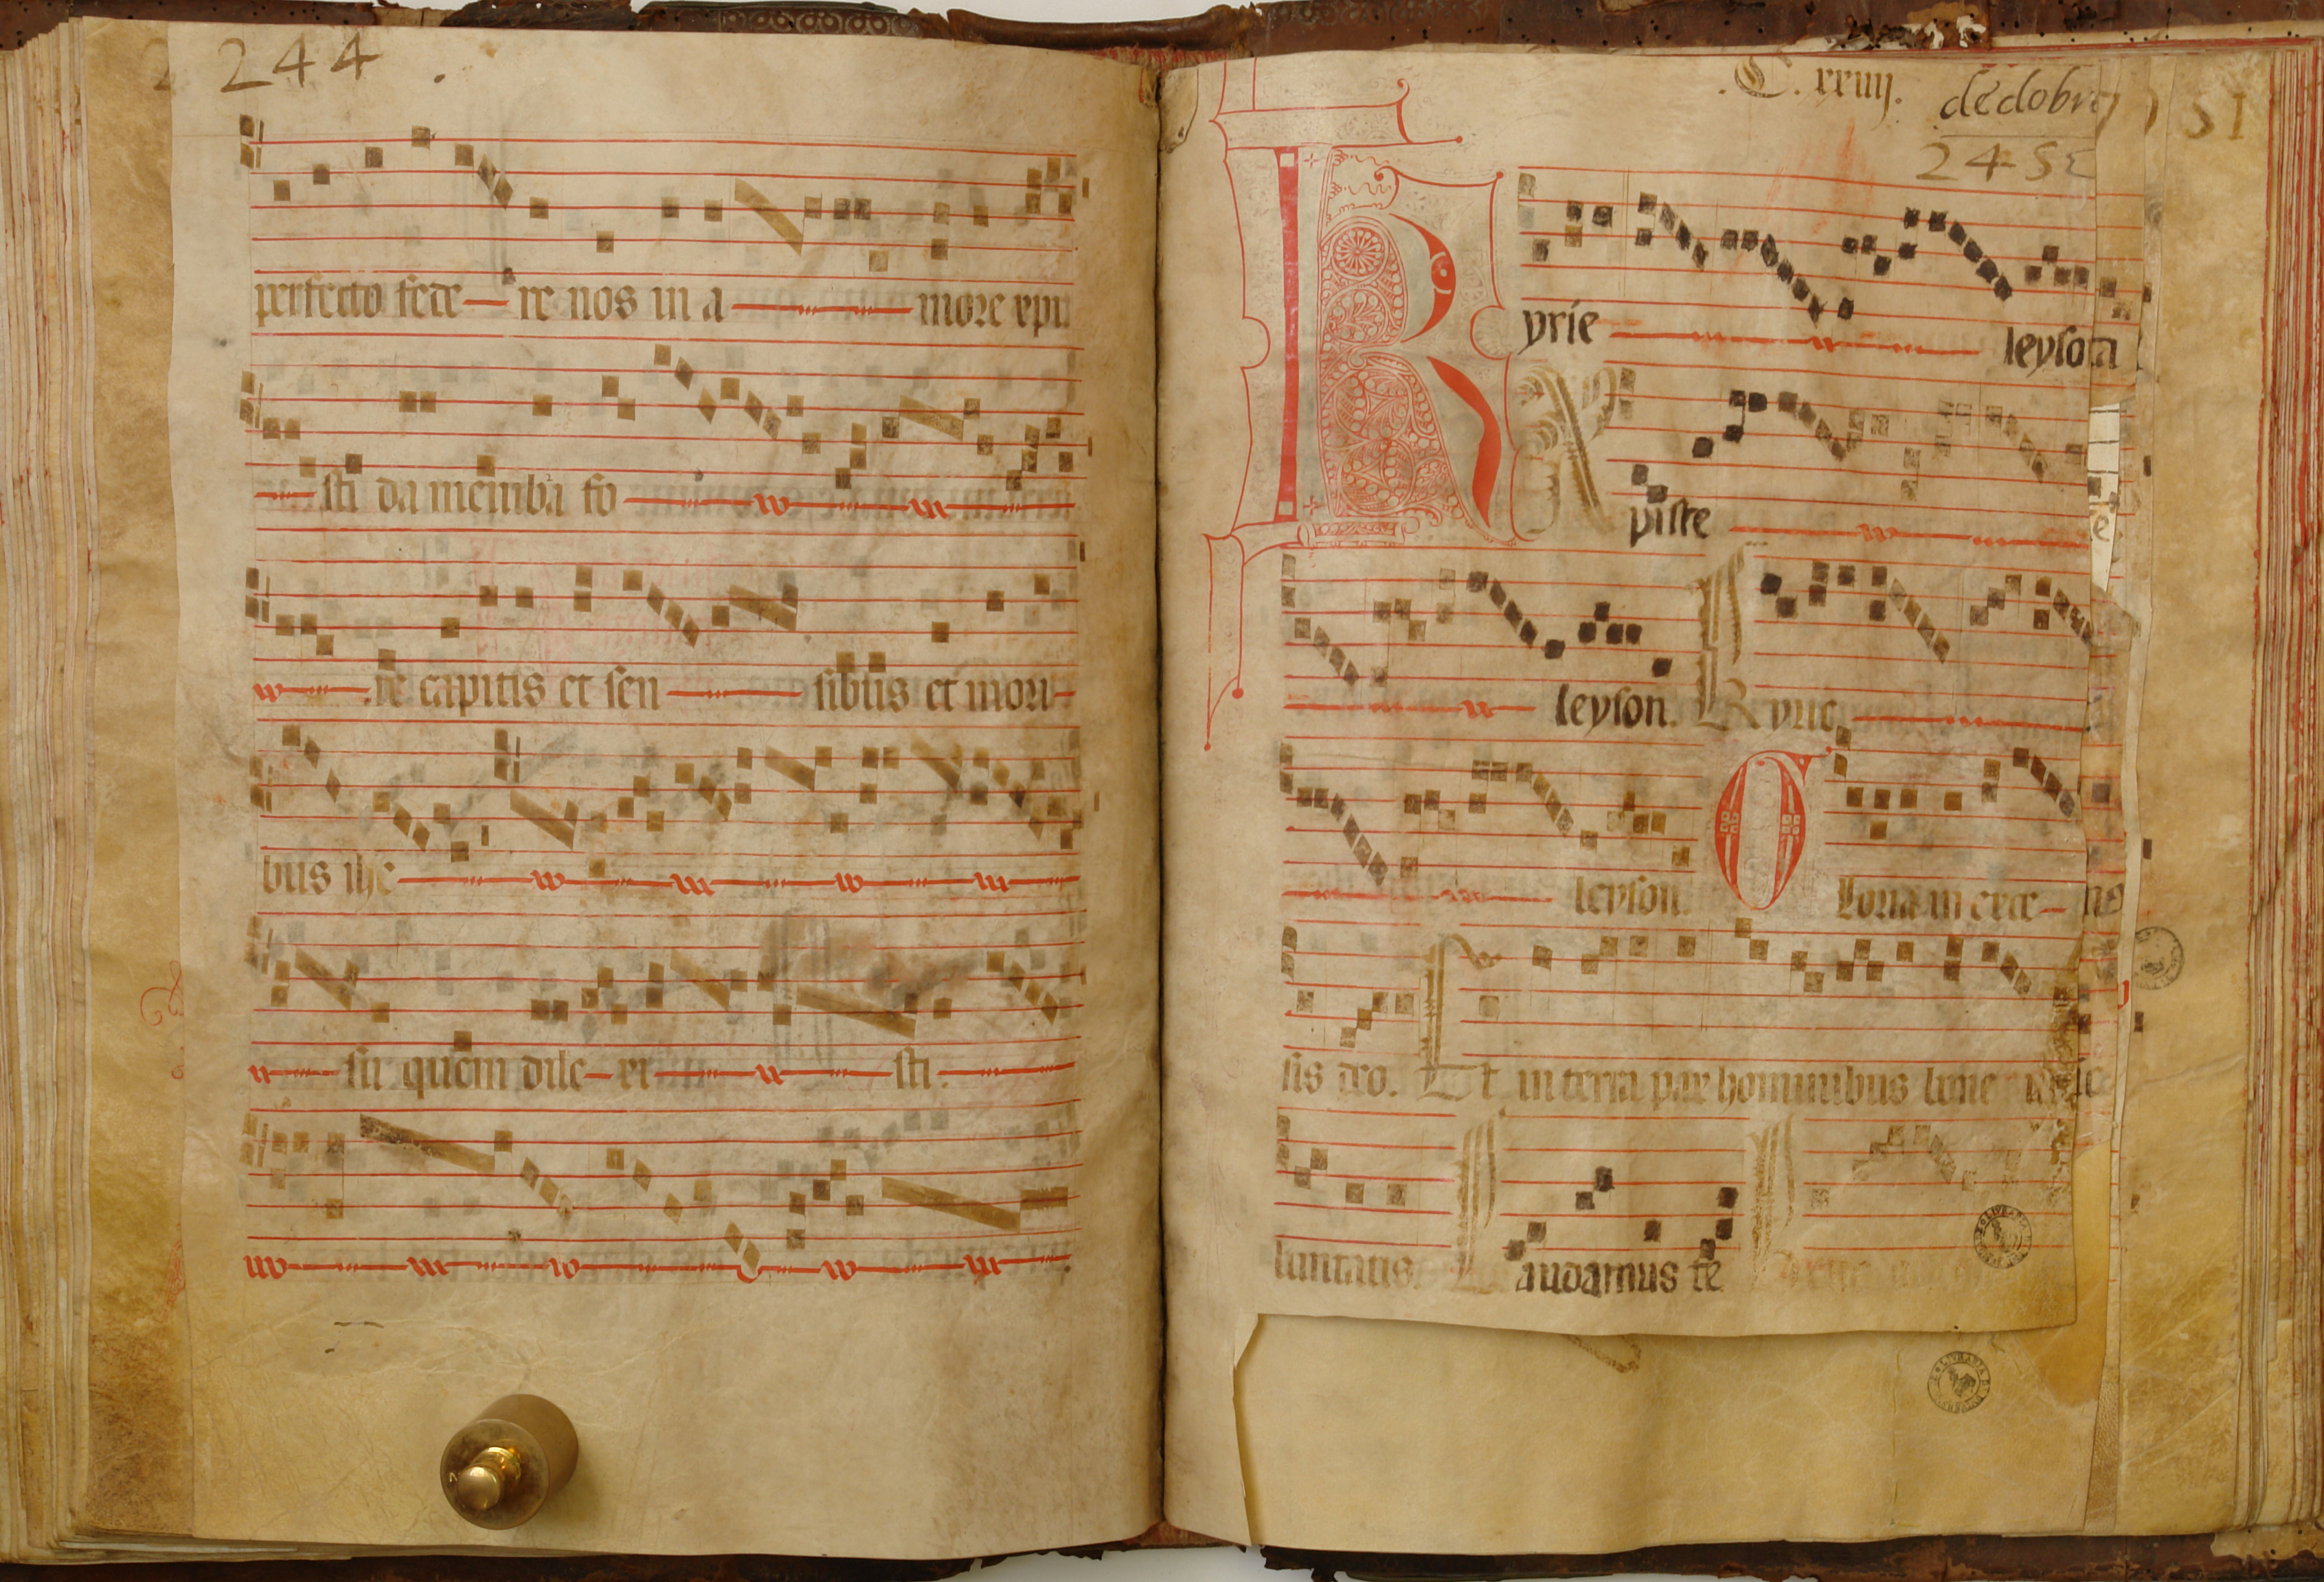 244
perfecto fede re nos in a more xpi
sti da membra fo
te capitis et sen sibus et mori
bus ihe
su quem dile xi sti.
.C. xxiiij. de dobre
245
51
Kyrie leyson
Xpiste
leyson. Kyrie
leyson. Gloria in exce
sis deo. Et in terra pax hominibus bone
luntatis. Laudamus te